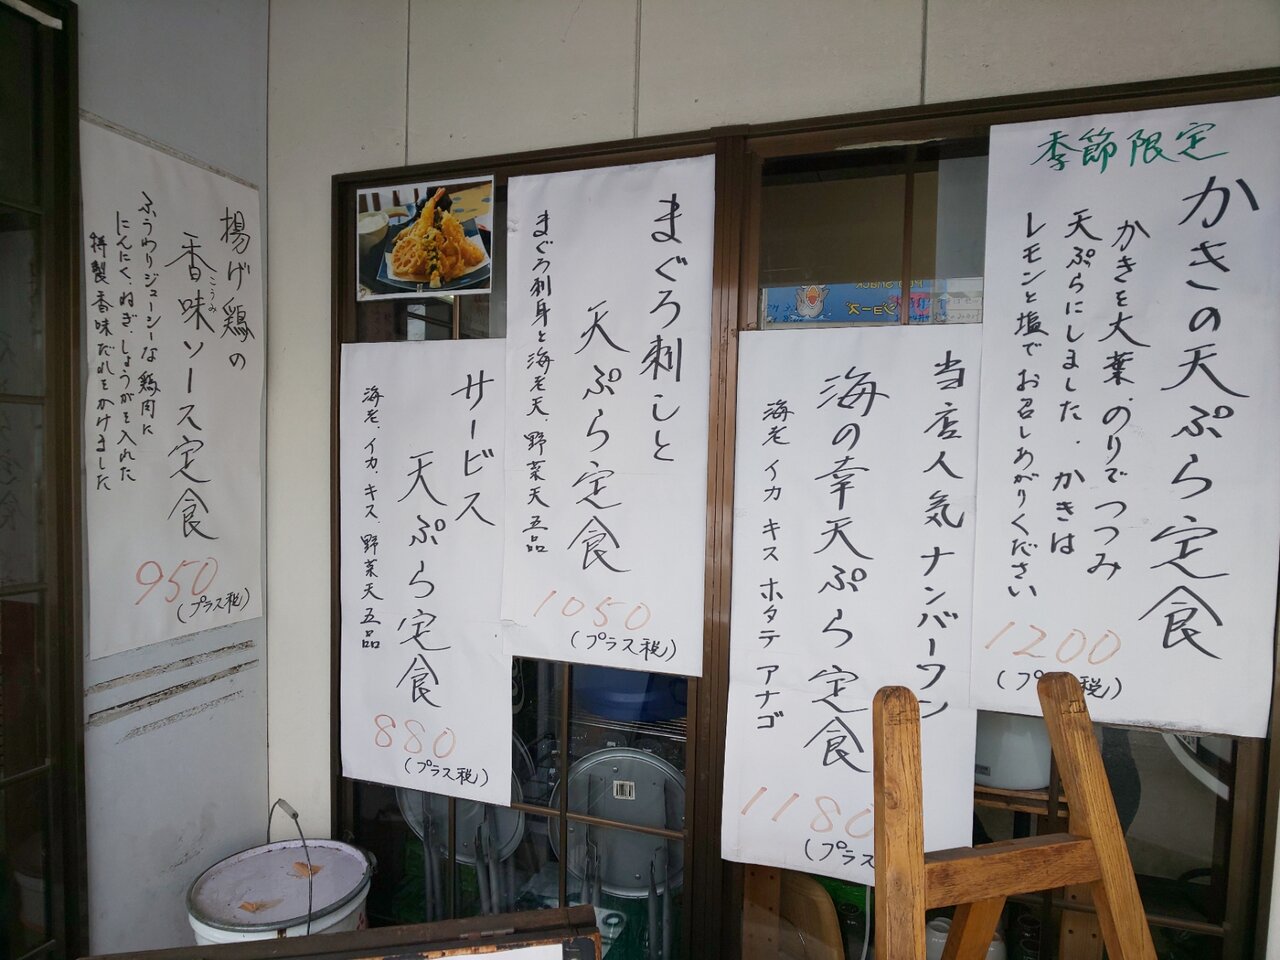 季節限定
かきの天ぷら定食
かきを大葉、のりでつつみ
天ぷらにしました。かきは
レモンと塩でお召しあがりください
1200
(プ 税)
当店人気ナンバーワン
海の幸天ぷら定食
海老 イカ キス ホタテ アナゴ
1180
(プラス
まぐろ刺しと
天ぷら定食
まぐろ刺身と海老天、野菜天五品
1050
(プラス税)
サービス
天ぷら定食
海老、イカ、キス、野菜天五品
880
(プラス税)
揚げ鶏の
香味ソース定食
こうみ
ふうわりジューシーな鶏肉に
にんにく、ねぎ、しょうがを入れた
特製香味だれをかけました
950
(プラス税)